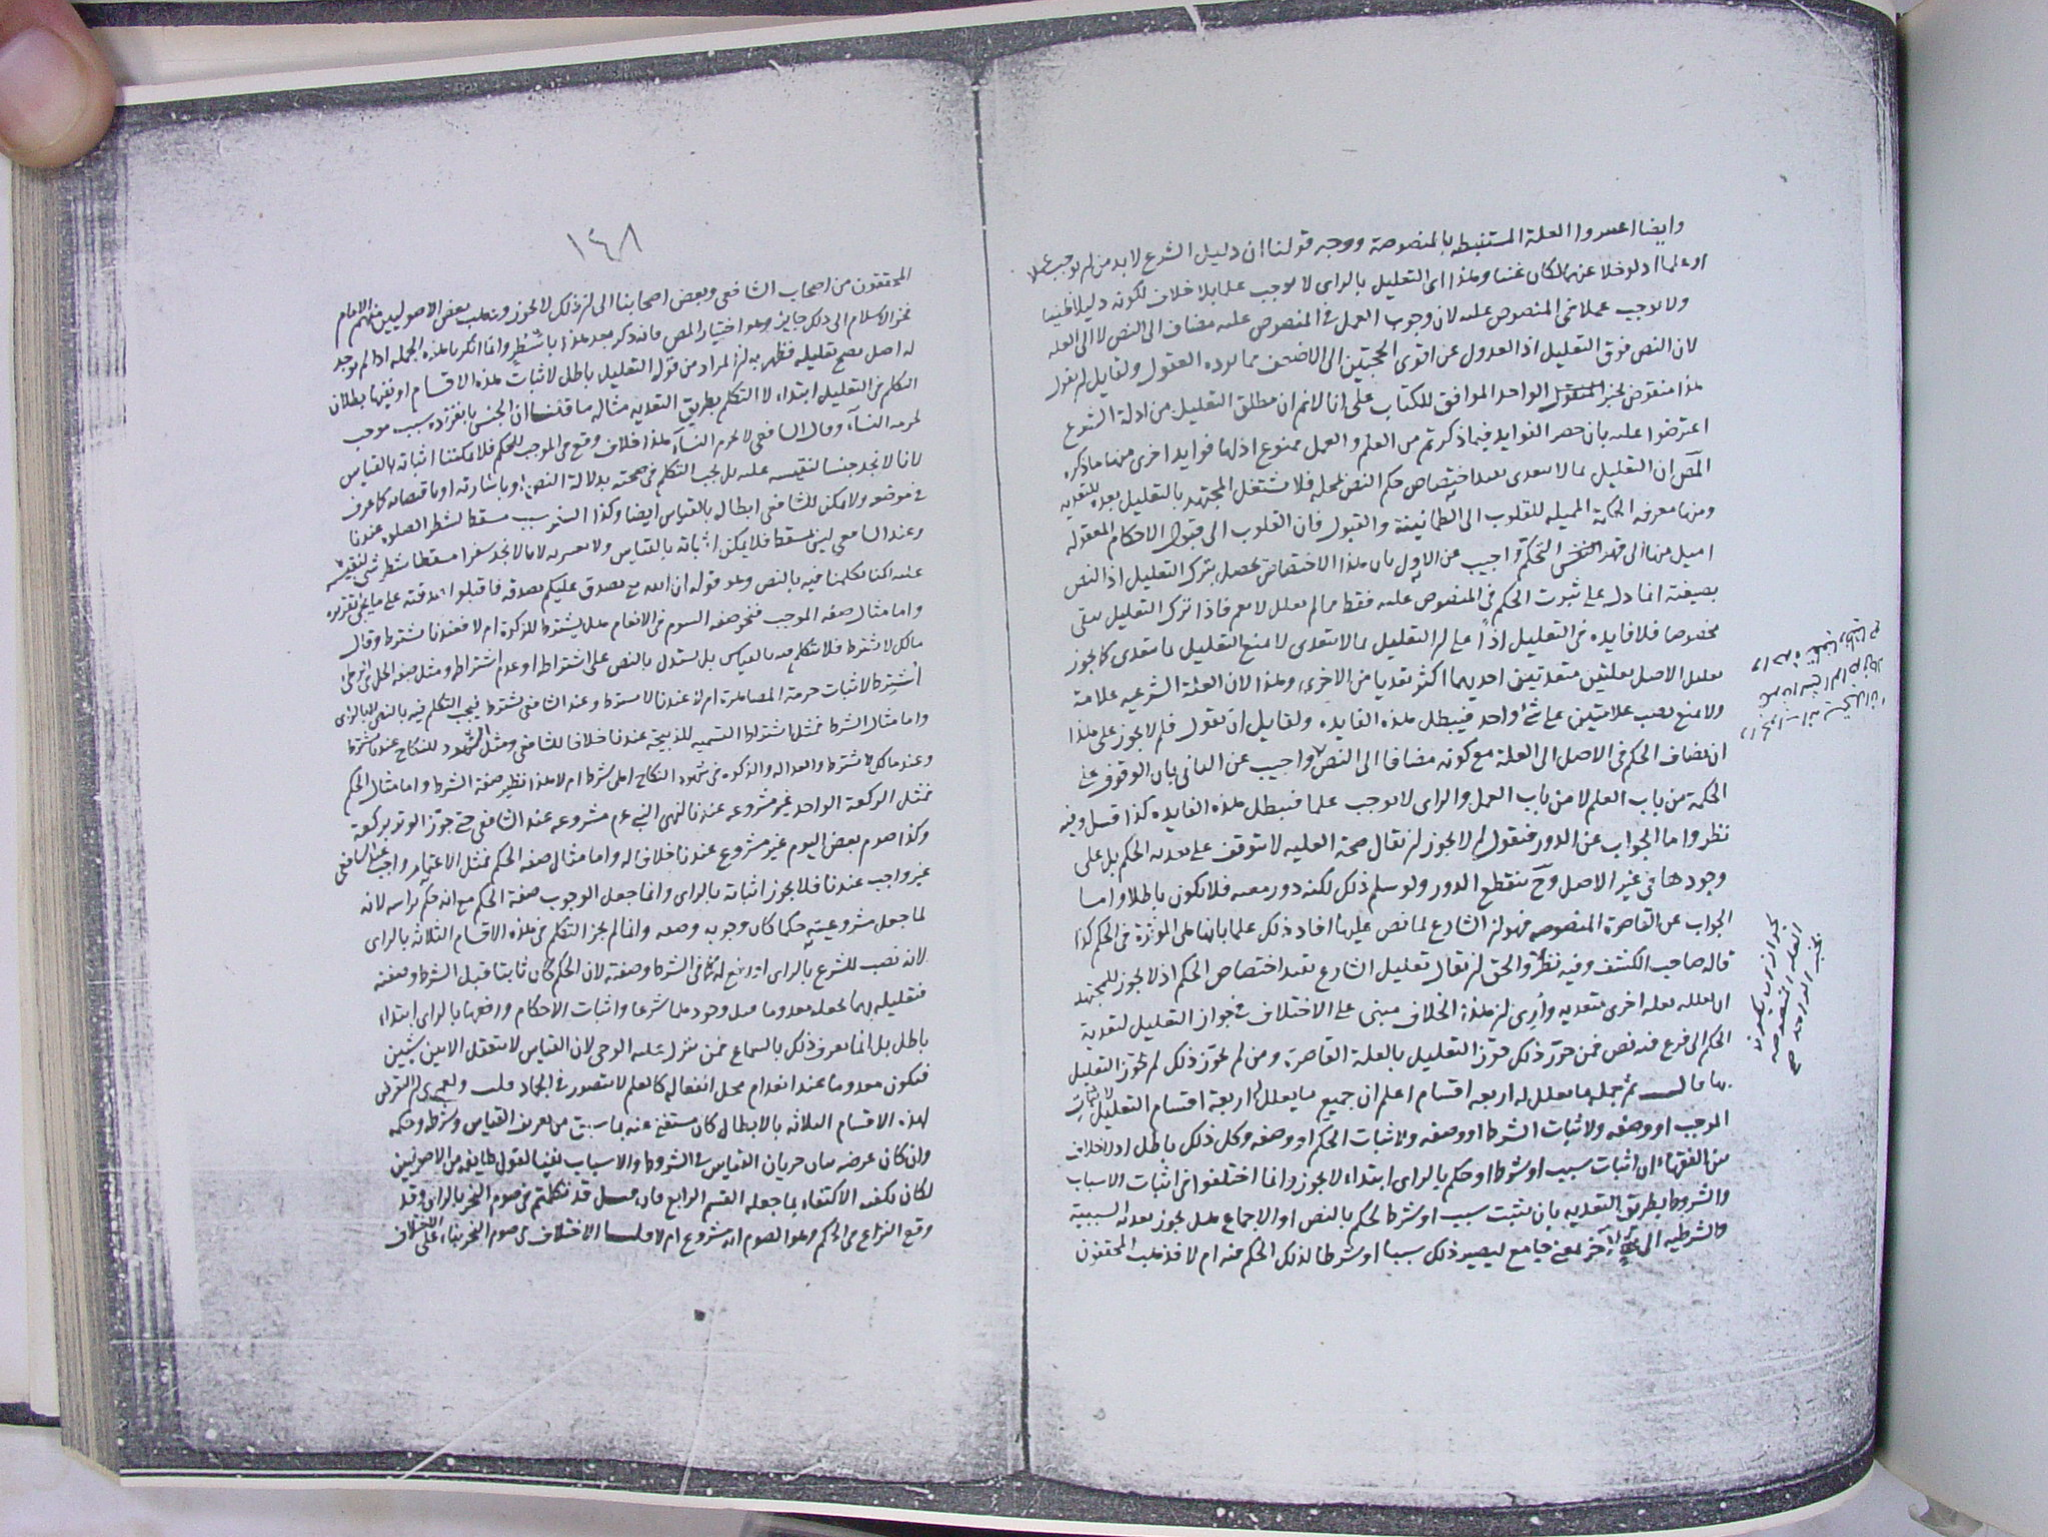 وايضا اعتبروا العلة المستنبطة بالمنصوصة ووجه قولنا ان دليل الشرع لا بد من ان يوجب علما
او عملا اذ لو خلا عنهما لكان عبثا وهذا اى التعليل بالراى لا يوجب علما بلا خلاف لكونه دليلا ظنيا
ولا يوجب عملا فى المنصوص عليه لان وجوب العمل فى المنصوص عليه مضاف الى النص لا الى العلة
لان النص فوق التعليل اذ العدول عن اقوى الحجتين الى الاضعف مما يرده العقول ولقايل ان يقول
هذا منقوض بخبر الواحد الموافق للكتاب على انا لانم ان مطلق التعليل من ادلة الشرع
اعترضوا عليه بان حصر الفوايد فيما ذكرتم من العلم والعمل ممنوع اذ لها فوايد اخرى منها ما ذكره
المص ان التعليل بما لا يتعدى يفيد اختصاص حكم النص لمحله فلا يشتغل المجتهد بالتعليل بعده للتعدية
ومنها معرفة الحكمة المميلة للقلوب الى الطمانينة والقبول فان القلوب الى قبول الاحكام المعقولة
اميل منها الى قهر التحكم واجيب عن الاول بان هذا الاختصاص يحصل بترك التعليل اذ النص
بصيغته انما دل على ثبوت الحكم فى المنصوص عليه فقط فما لم يعلل لا يعم فاذا ترك التعليل يبقى
مخصوصا فلا فايدة فى التعليل اذا على ان التعليل بما لا يتعدى لا يمنع التعليل بما يتعدى كما يجوز
تعليل الاصل بعلتين متعديتين احديهما اكثر تعديا من الاخرى وهذا لان العلة الشرعية علامة
ولا يمنع نصب علامتين على شئ واحد فيبطل هذه الفايدة ولقايل ان يقول فلم لا يجوز على هذا
ان يضاف الحكم فى الاصل الى العلة مع كونه مضافا الى النص واجيب عن الثانى بان الوقوف على
الحكمة من باب العلم لا من باب العمل والراى لا يوجب علما فيبطل هذه الفايدة كذا قيل وفيه
نظر واما الجواب عن الدور فنقول لم لا يجوز ان يقال صحة العلية لا يتوقف على تعدية الحكم بل على
وجودها فى غير الاصل وح ينقطع الدور ولو سلم ذلك لكنه دور معية فلا يكون باطلا واما
الجواب عن القاصرة المنصوصة فهو ان الشارع لما نص عليها افاد ذلك علما بانها هى الموثرة فى الحكم كذا
قاله صاحب الكشف وفيه نظر والحق ان يقال تعليل الشارع يفيد اختصاص الحكم اذ لا يجوز للمجتهد
ان يعلله بعلة اخرى متعدية وأرى ان هذا الخلاف مبنى على الاختلاف فى جواز التعليل لتعدية
الحكم الى فرع فيه نص فمن جوز ذلك جوز التعليل بالعلة القاصرة ومن لم يجوز ذلك لم يجوز التعليل
بها قال ثم جملة ما يعلل له اربعة اقسام اعلم ان جميع ما يعلل له اربعة اقسام التعليل لاثبات
الموجب او وصفه ولاثبات الشرط او وصفه ولاثبات الحكم او وصفه وكل ذلك باطل اذ لا خلاف
بين الفقهاء ان اثبات سبب او شرط او حكم بالراى ابتداء لا يجوز وانما اختلفوا فى اثبات الاسباب
والشروط بطريق التعدية بان يثبت سبب او شرط لحكم بالنص او الاجماع هل يجوز تعدية السببية
والشرطية الى آخر لمعنى جامع ليصير ذلك سببا او شرطا لذلك الحكم منه ام لا فذهب المحققون
١٤٨
المحققون من اصحاب الشافعى وبعض اصحابنا الى ان ذلك لا يجوز وذهب بعض الاصوليين منهم الامام
فخر الاسلام الى ذلك جايز وهو اختيار المص فانه ذكر بعد هذا باشطر وانما انكرنا هذه الجملة اذا لم يوجد
له اصل يصح تعليله فظهر به ان المراد من قوله التعليل باطل لاثبات هذه الاقسام او نفيها بطلان
التكلم فى التعليل ابتداء لا التكلم بطريق التعدية مثاله ما قلنا ان الجنس بانفراده سبب موجب
لحرمة النسآء وقال الشافعى لا يحرم النسآء هذا خلاف وقع فى الموجب للحكم فلا يمكننا اثباته بالقياس
لانا لا نجد جنسا لنقيسه عليه بل يجب التكلم فى صحته بدلالة النص او باشارته او باقتضائه كما عرف
فى موضعه ولا يمكن للشافعى ابطاله بالقياس ايضا وكذا السفر سبب مسقط لشطر الصلوة عندنا
وعند الشافعى ليس مسقطا فلا يمكن اثباته بالقياس ولا لانا لا نجد سفرا مسقطا شطر شى لنقيسه
عليه لكنا تكلمنا فيه بالنص وهو قوله ان الله تع تصدق عليكم بصدقة فاقبلوا صدقته على ما يجئ تقريره
واما مثال صفة الموجب فنحو صفة السوم فى الانعام هل يشترط للزكوة ام لا فعندنا يشترط وقال
مالك لا يشترط فلا نتكلم فيه بالقياس بل يستدل بالنص على اشتراطه او عدم اشتراطه ومثل صفة الحل فى الوطى
أشترط لاثبات حرمة المصاهرة ام لا عندنا لا يشترط وعند الشافعى يشترط فيجب التكلم فيه بالنص لا بالراى
واما مثال الشرط فمثل اشتراط التسمية للذبيحة عندنا خلافا للشافعى ومثل الشهود للنكاح عندنا يشترط
وعند مالك لا يشترط والعدالة والذكورة فى شهود النكاح اهى شرط ام لا هذا نظير صفة الشرط واما مثال الحكم
فمثل الركعة الواحدة غير مشروعة عندنا لنهى النبى عم مشروعة عند الشافعى حتى جوز الوتر بركعة
وكذا صوم بعض اليوم غير مشروع عندنا خلافا له واما مثال صفة الحكم فمثل واجب عند الشافعى
غير واجب عندنا فلا يجوز اثباته بالراى وانما جعل الوجوب صفة الحكم مع انه حكم براسه لانه
لما جعل مشروعيته حكما كان وجوبه وصفه وانما لم يجز التكلم فى هذه الاقسام الثلاثة بالراى
لانه نصب للشرع بالراى او رفع له كما فى الشرط وصفته لان الحكم كان ثابتا قبل الشرط وصفته
فتعليله بهما يجعله معدوما قبل وجودهما شرعا واثبات الاحكام ورفعها بالراى ابتداء
باطل بل انما يعرف ذلك بالسماع عمن ينزل عليه الوحى لان القياس لا يتعقل الا بين شيئين
فيكون معدوما عند انعدام محل انفعاله كالعلم لا يتصور فى الجماد قلت ولعمرى ان التعرض
لهذه الاقسام الثلاثة بالابطال كان مستغنى عنه بما سبق من تعريف القياس وشرطه وحكمه
وان كان غرضه بيان جريان القياس فى الشروط والاسباب نفيا لقول طايفة من الاصوليين
لكان يكفيه الاكتفاء بما جعله القسم الرابع فان قيل قد تكلمتم فى صوم النحر بالراى وقد
وقع النزاع فى الحكم وهو الصوم انه مشروع ام لا قلنا الاختلاف فى صوم النحر بناء على الاختلاف